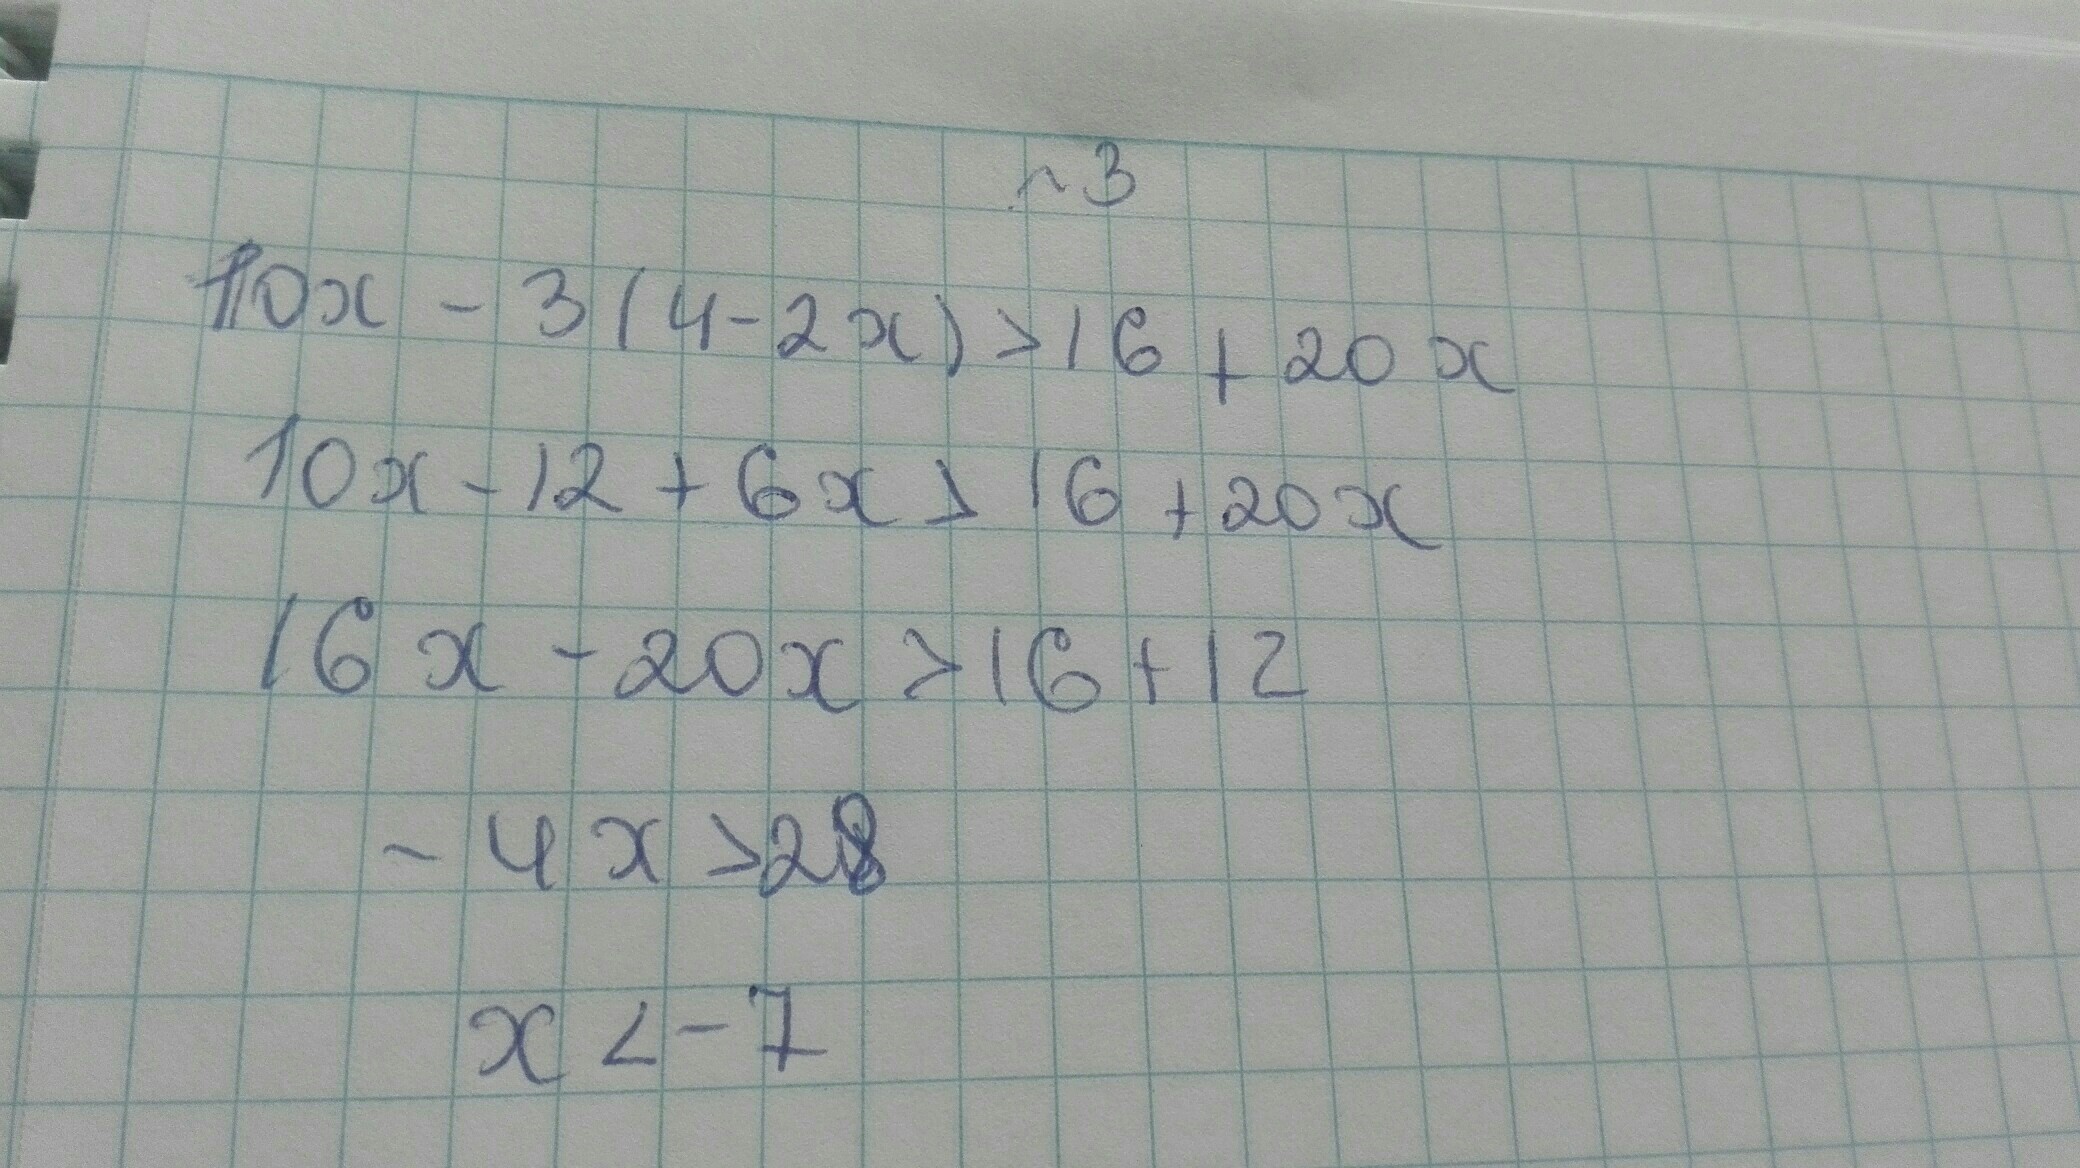 ~3
10x - 3(4-2x)>16+20x
10x-12+6x>16+20x
16x-20x>16+12
-4x>28
x<-7